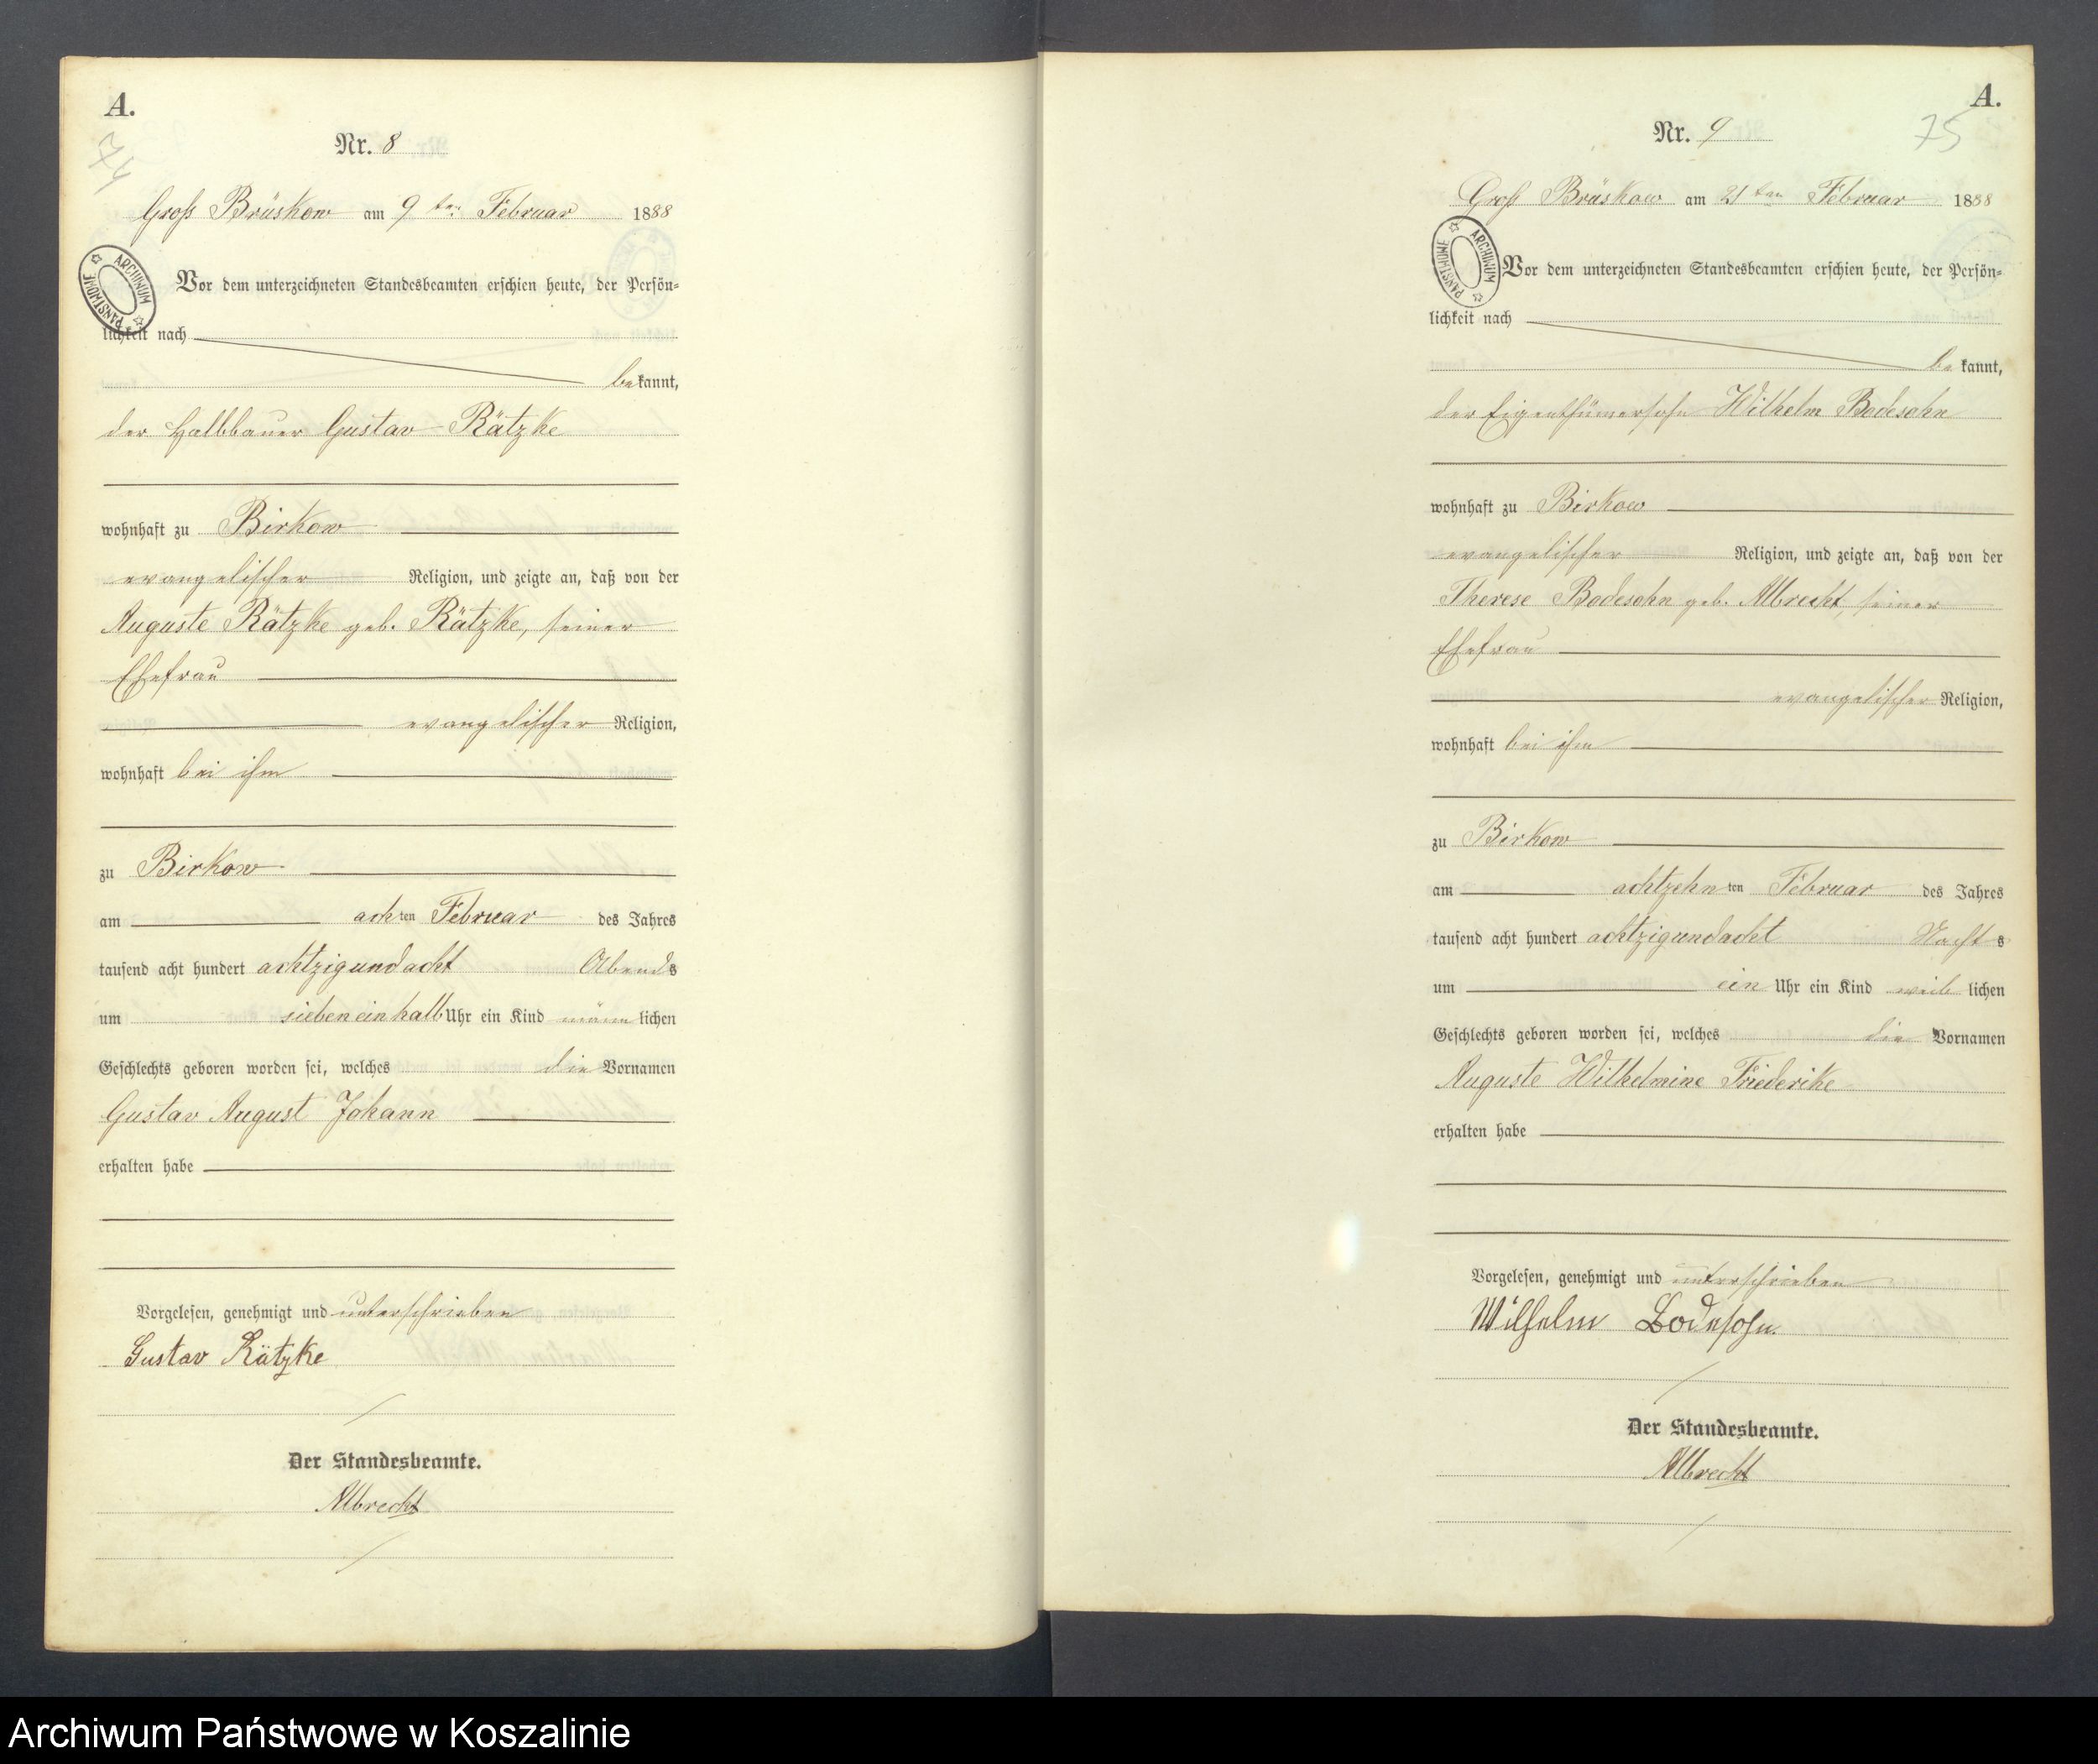 A.
74
Nr. 8
Groß Brüskow am 9ten Februar 1888
ARCHIWUM PAŃSTWOWE
Vor dem unterzeichneten Standesbeamten erschien heute, der Persön=
lichkeit nach
bekannt,
der Halbbauer Gustav Rätzke
wohnhaft zu Birkow
evangelischer Religion, und zeigte an, daß von der
Auguste Rätzke geb. Rätzke, seiner
Ehefrau
evangelischer Religion,
wohnhaft bei ihm
zu Birkow
am achten Februar des Jahres
tausend acht hundert achtzigundacht Abends
um siebeneinhalb Uhr ein Kind männlichen
Geschlechts geboren worden sei, welches die Vornamen
Gustav August Johann
erhalten habe
Vorgelesen, genehmigt und unterschrieben
Gustav Rätzke
Der Standesbeamte.
Albrecht
A.
75
Nr. 9
Groß Brüskow am 21ten Februar 1888
ARCHIWUM PAŃSTWOWE
Vor dem unterzeichneten Standesbeamten erschien heute, der Persön=
lichkeit nach
bekannt,
der Eigenthümersohn Wilhelm Bodesohn
wohnhaft zu Birkow
evangelischer Religion, und zeigte an, daß von der
Therese Bodesohn geb. Albrecht, seiner
Ehefrau
evangelischer Religion,
wohnhaft bei ihm
zu Birkow
am achtzehnten Februar des Jahres
tausend acht hundert achtzigundacht Nachts
um ein Uhr ein Kind weiblichen
Geschlechts geboren worden sei, welches die Vornamen
Auguste Wilhelmine Friederike
erhalten habe
Vorgelesen, genehmigt und unterschrieben
Wilhelm Bodesohn.
Der Standesbeamte.
Albrecht
Archiwum Państwowe w Koszalinie